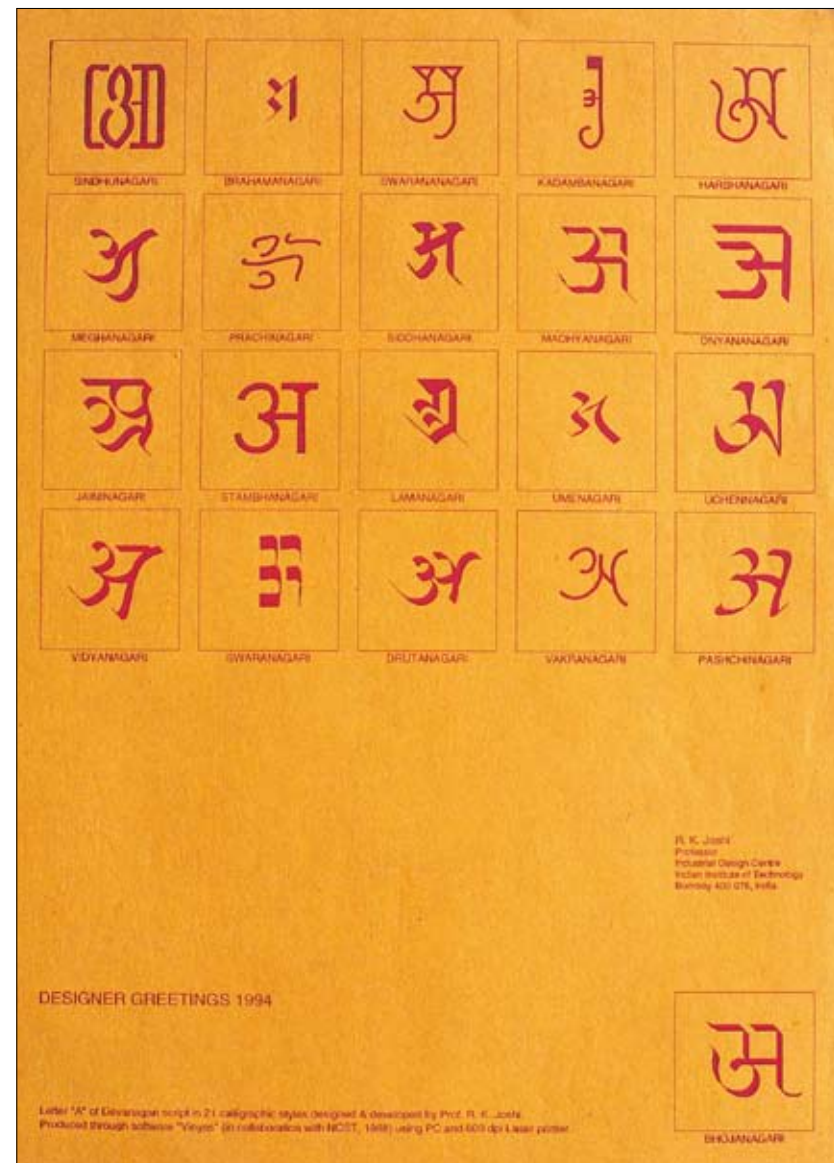 अ अ अ अ अ
SINDHUNAGARI BRAHAMANAGARI SWARANANAGARI KADAMBANAGARI HARSHANAGARI
अ अ अ अ अ
MEGHANAGARI PRACHINAGARI SIDDHANAGARI MADHYANAGARI DNYANANAGARI
अ अ अ अ अ
JAININAGARI STAMBHANAGARI LAMANAGARI UMENAGARI UCHENNAGARI
अ अ अ अ अ
VIDYANAGARI SWARANAGARI DRUTANAGARI VAKRANAGARI PASHCHINAGARI
R. K. Joshi
Professor
Industrial Design Centre
Indian Institute of Technology
Bombay 400 076, India
DESIGNER GREETINGS 1994
अ
BHOJANAGARI
Letter "A" of Devanagari script in 21 calligraphic styles designed & developed by Prof. R. K. Joshi
Produced through software "Vinyas" (in collaboration with NCST, 1988) using PC and 600 dpi Laser printer